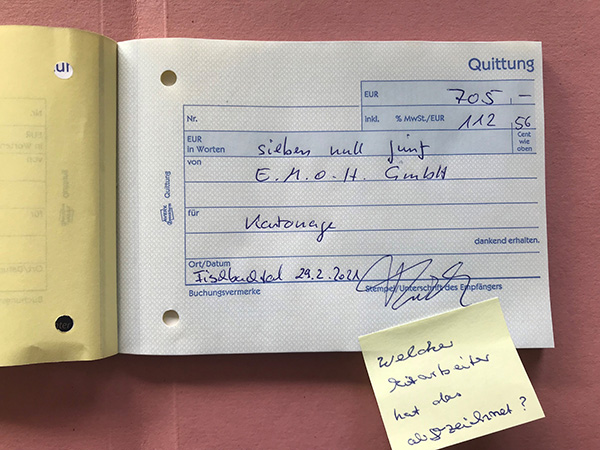 Quittung
EUR 705,—
Nr.
inkl. % MwSt./EUR 112 56
EUR in Worten sieben null fünf
Cent wie oben
von E.M.O.H. GmbH
für Kartonage
dankend erhalten.
Ort/Datum
Fischbachtal 29.2.2021
Buchungsvermerke
Stempel/Unterschrift des Empfängers
Quittung
Welcher
Mitarbeiter
hat das
abgezeichnet?